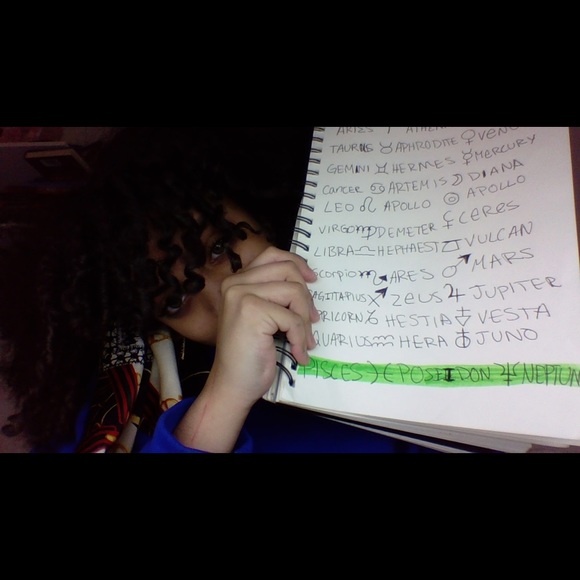 ARIES ♈ ATHENA
TAURUS ♉ APHRODITE ♀ VENUS
GEMINI ♊ HERMES ☿ MERCURY
CANCER ♋ ARTEMIS ☽ DIANA
LEO ♌ APOLLO ☉ APOLLO
VIRGO ♍ DEMETER ⚳ CERES
LIBRA ♎ HEPHAEST VULCAN
SCORPIO ♏ ARES ♂ MARS
AGITARIUS ♐ ZEUS ♃ JUPITER
PRICORN ♑ HESTIA VESTA
QUARIUS ♒ HERA JUNO
PISCES )( POSEIDON ♆ NEPTUN